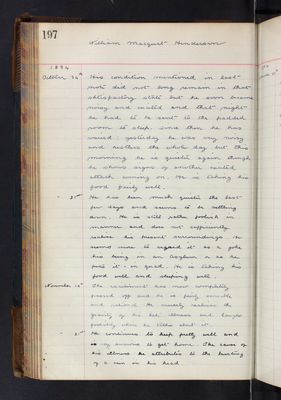 197
William Macquet Henderson
1894
October 24th His condition mentioned in last
note did not long remain in that
satisfactory state but he soon became
noisy and excited and that night
he had to be sent to the padded
room to sleep. Since then he has
varied, yesterday he was very noisy
and restless the whole day but this
morning he is quieter again though
he shows signs of another excited
attack coming on. He is taking his
food fairly well.
31st He has been much quieter the last
few days and seems to be settling
down. He is still rather foolish in
manner and does not sufficiently
realise his present surroundings. He
seems more to regard it as a joke
his being in an Asylum or as he
puts it in quod. He is taking his
food well and sleeping well.
November The excitement has now completely
passed off and he is fairly sensible
and rational. He scarcely realises the
gravity of his late illness and laughs
foolishly when he talks about it.
He continues to keep fairly well and
is very anxious to get home. The cause of
his illness he attributes to the bursting
of a vein in his head